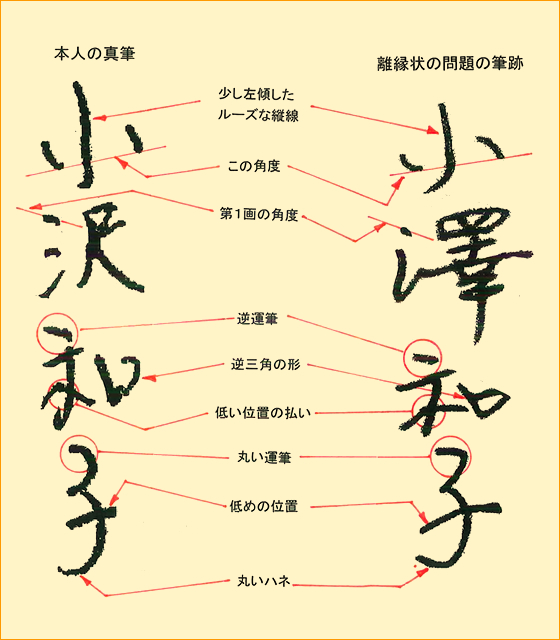 本人の真筆
離縁状の問題の筆跡
小沢和子
小澤和子
少し左傾した
ルーズな縦線
この角度
第1画の角度
逆運筆
逆三角の形
低い位置の払い
丸い運筆
低めの位置
丸いハネ